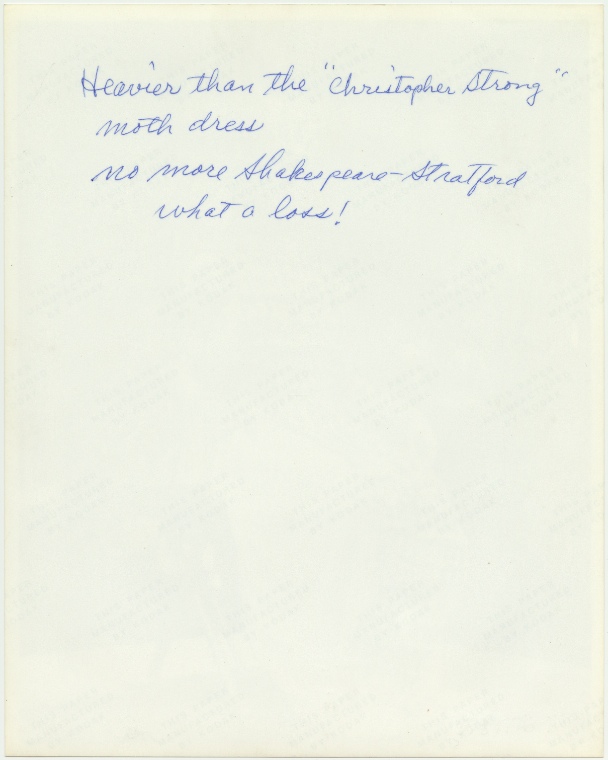 Heavier than the "Christopher Strong"
moth dress
no more Shakespeare-Stratford
what a loss!